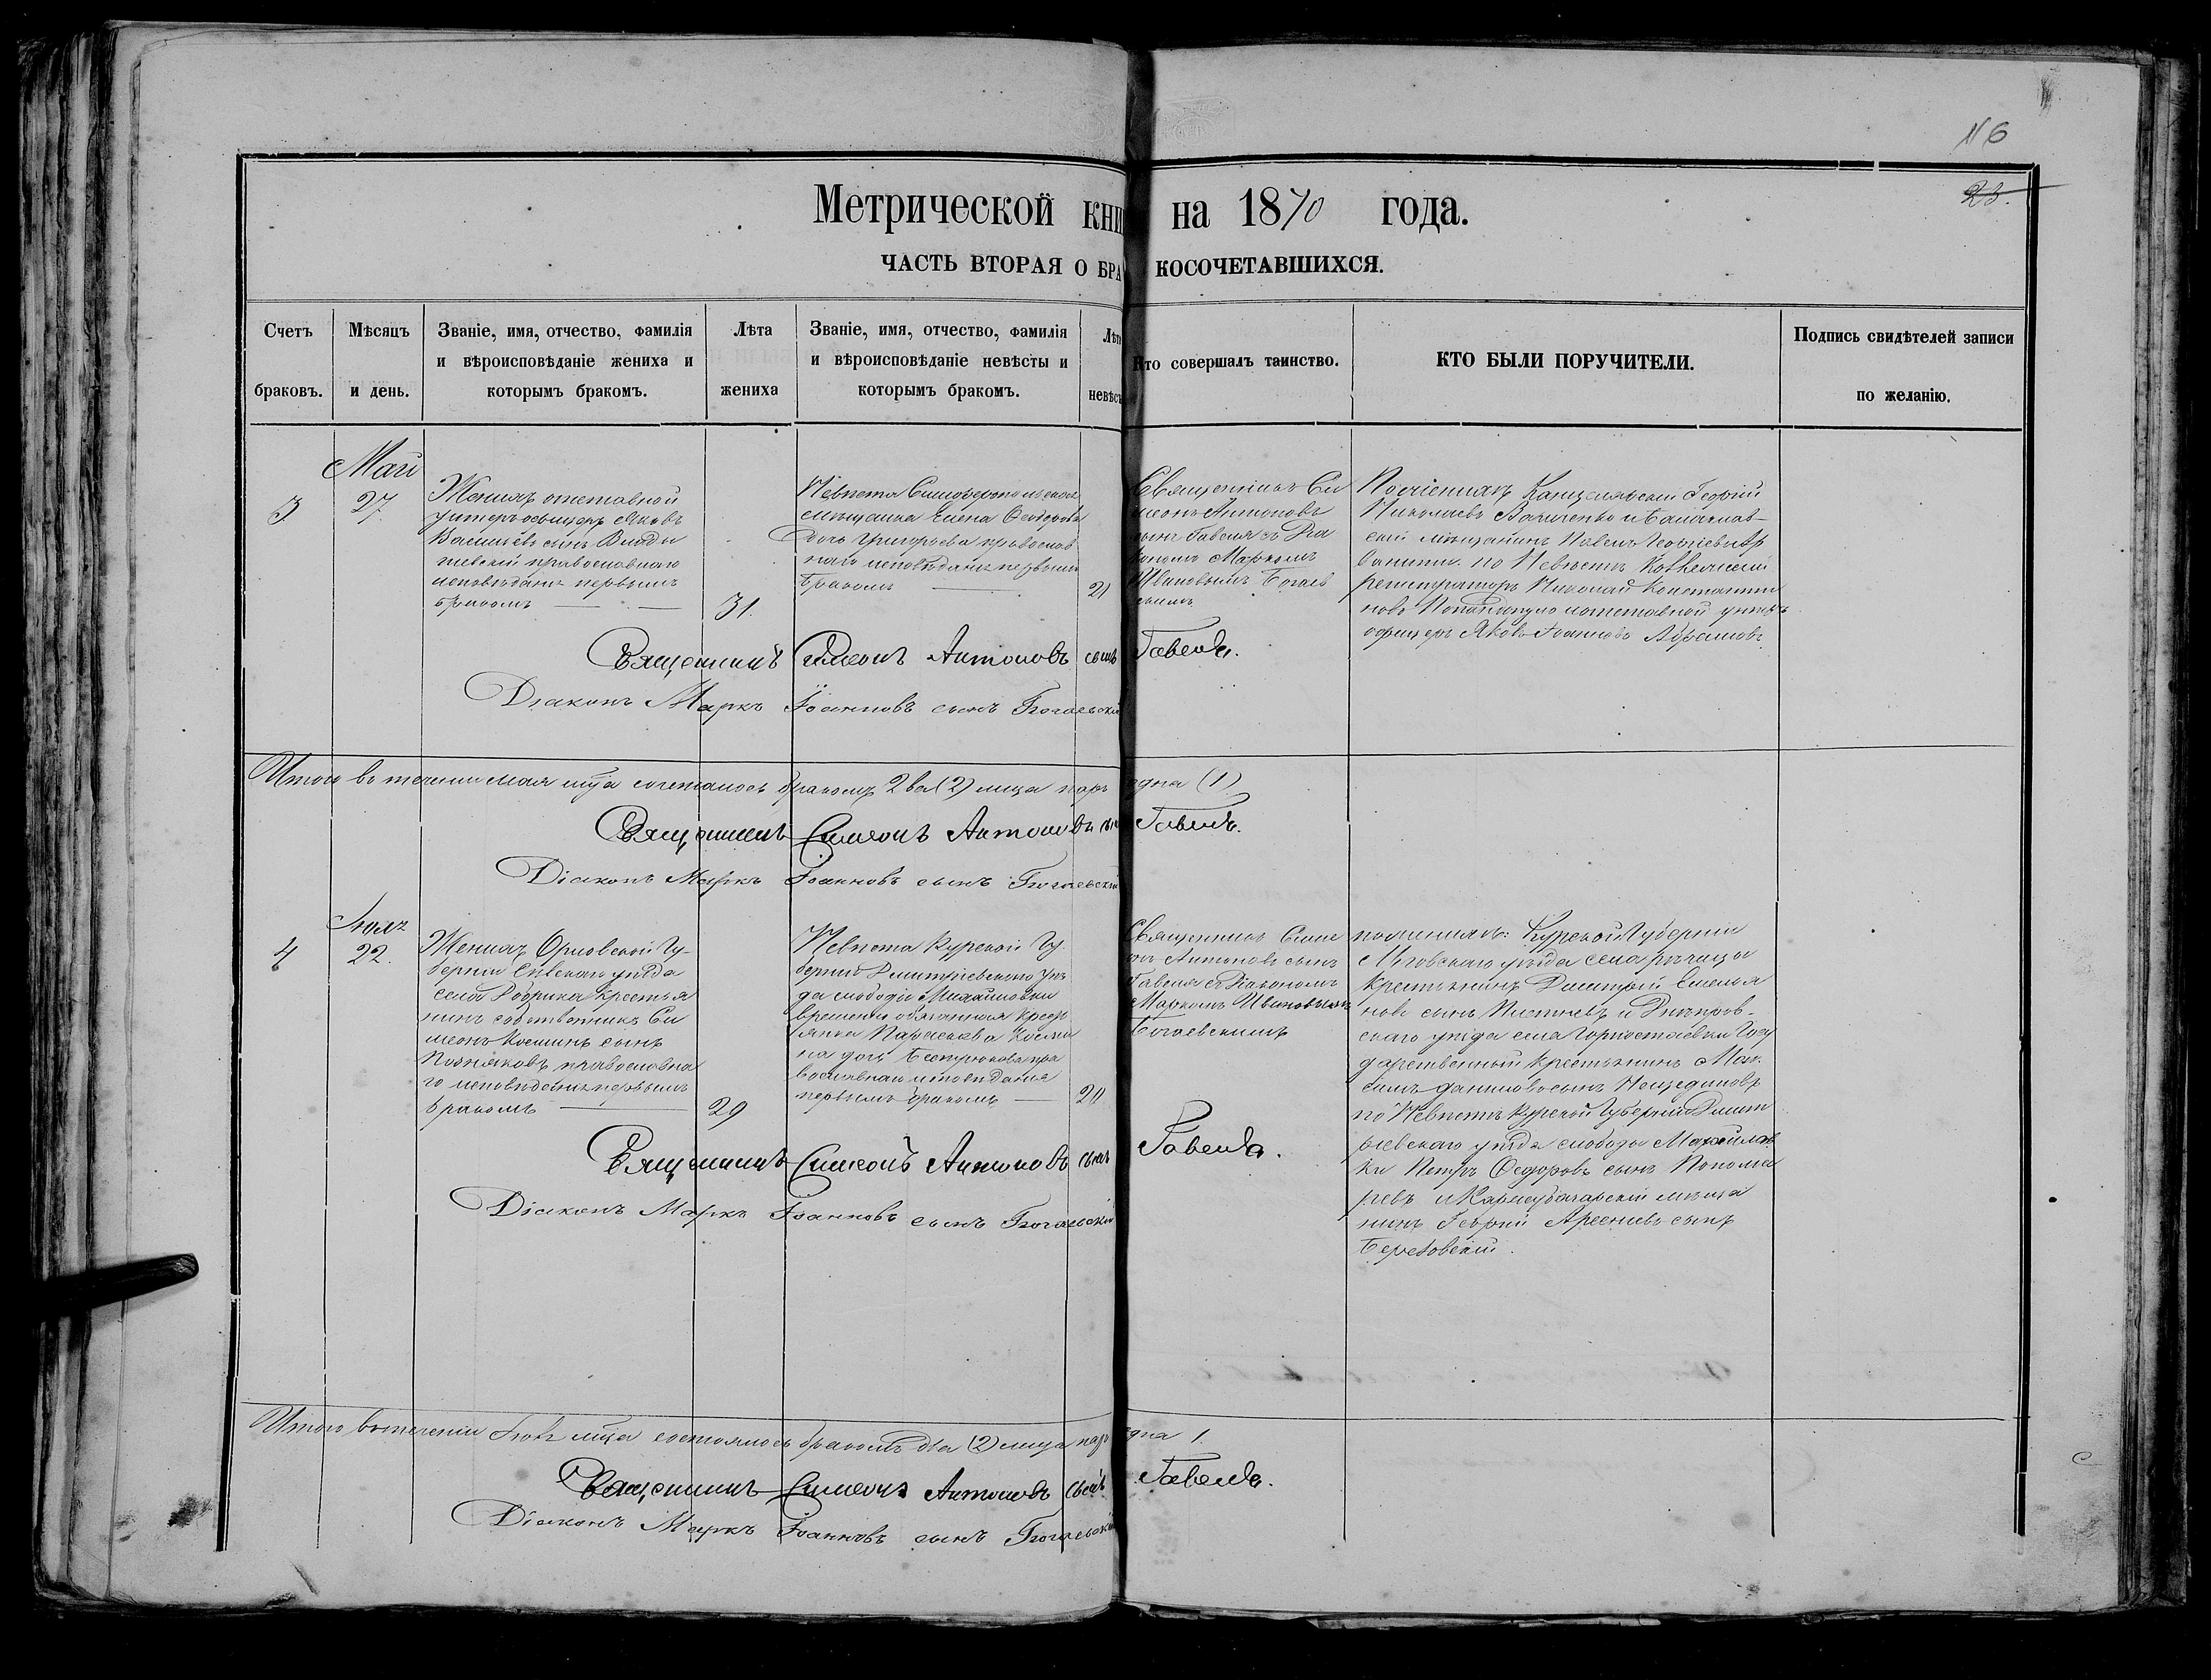 116
23.
Метрической кни на 1870 года.
ЧАСТЬ ВТОРАЯ О БРА КОСОЧЕТАВШИХСЯ.
Счетъ браковъ.
Мѣсяцъ и день.
Званіе, имя, отчество, фамилія
и вѣроисповѣданіе жениха и
которымъ бракомъ.
Лѣта
жениха
Званіе, имя, отчество, фамилія
и вѣроисповѣданіе невѣсты и
которымъ бракомъ.
Лѣта
невѣс
Кто совершалъ таинство.
КТО БЫЛИ ПОРУЧИТЕЛИ.
Подпись свидѣтелей записи
по желанію.
3
Маія
27
Женихъ отставной
унтеръ офицеръ Яковъ
Васильевъ сынъ
православнаго
исповѣданія первымъ
бракомъ
31.
Невѣста Симферопольская
мѣщанка Елена Ѳеодорова
дочь Григорьева православ
наго исповѣданія первымъ
бракомъ
21
Священникъ Си
меонъ Антоновъ
сынъ Гавеля съ Діа
кономъ Маркомъ
Ивановымъ Богаев
скимъ
Канцелярскій Георгій
Николаевъ и Балаклав-
скій мѣщанинъ Павелъ Георгіевъ
по Невѣстѣ
регистраторъ Николай Константи
новъ и отставной унтеръ
офицеръ Яковъ Іоанновъ Абрамовъ.
Священникъ Симеонъ Антоновъ сынъ Гавеля.
Діаконъ Маркъ Іоанновъ сынъ Богаевскій
Итого въ теченіи мая мца сочеталось бракомъ 2 ва (2) лица паръ одна (1)
Священникъ Симеонъ Антоновъ сын Гавеля.
Діаконъ Маркъ Іоанновъ сынъ Богаевскій
4
Іюля
22.
Женихъ Орловской Гу-
берніи Сѣвскаго уѣзда
села крестья
нинъ собственникъ Си
меонъ Косминъ сынъ
Поздняковъ православна
го исповѣданія первымъ
бракомъ
29
Невѣста Курской Гу
берніи Дмитріевскаго уѣз
да слободы Михайловки
временно обязанная крест
янка Параскева Косми
на дочь Бестрюкова пра
вославнаго исповѣданія
первымъ бракомъ
20
Священникъ Симе
онъ Антоновъ сынъ
Гавеля съ Діакономъ
Маркомъ Ивановымъ
Богаевскимъ
Курской Губерніи
Льговскаго уѣзда села
крестьянинъ Дмитрій Емелья
новъ сынъ и Днѣпров-
скаго уѣзда села Горностаевки Госу
дарственный крестьянинъ Мак
симъ Даниловъ сынъ
по Невѣстѣ Курской Губерніи Дмит
ріевскаго уѣзда слободы Михайлов
ки Петръ Ѳедоровъ сынъ Понома
ревъ и Карасубазарскій мѣща
нинъ Георгій Арсеніевъ сынъ
Березовскій.
Священникъ Симеонъ Антоновъ сынъ Гавеля.
Діаконъ Маркъ Іоанновъ сынъ Богаевскій
Итого въ теченіи Іюля мца состоялось бракомъ два (2) лица паръ одна 1.
Священникъ Симеонъ Антоновъ сынъ Гавеля.
Діаконъ Маркъ Іоанновъ сынъ Богаевскій